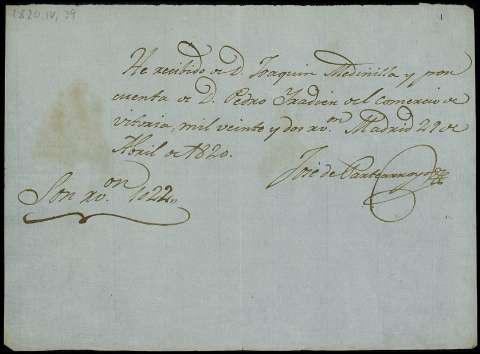 1820, IV, 29
1
He recibido de D. Joaquin Medinilla y por
cuenta de D. Pedro Iradier del Comercio de
Vitoria, mil veinte y dos rs. von. Madrid 29 de
Abril de 1820.
José de
Son rs. von. 1022,,